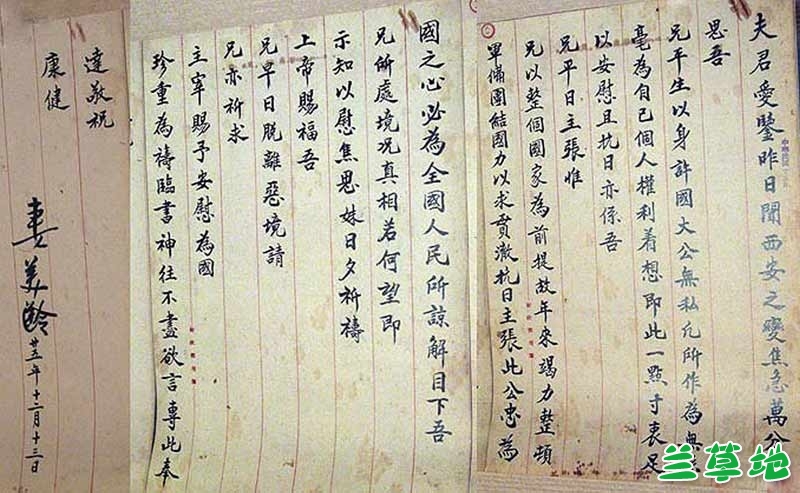 夫君愛鑒昨日聞西安之變焦急萬分
思吾
兄平生以身許國大公無私凡所作為無
毫為自己個人權利着想即此一點寸衷足
以安慰且抗日亦係吾
兄平日主張惟
兄以整個國家為前提故年來竭力整頓
軍備團結國力以求貫澈抗日主張此公忠為
國之心必為全國人民所諒解目下吾
兄所處境況真相若何望即
示知以慰焦思妹日夕祈禱
上帝賜福吾
兄早日脫離惡境請
兄亦祈求
主宰賜予安慰為國
珍重為禱臨書神往不盡欲言專此奉
達敬祝
康健
妻美齡廿五年十二月十三日
兰草地